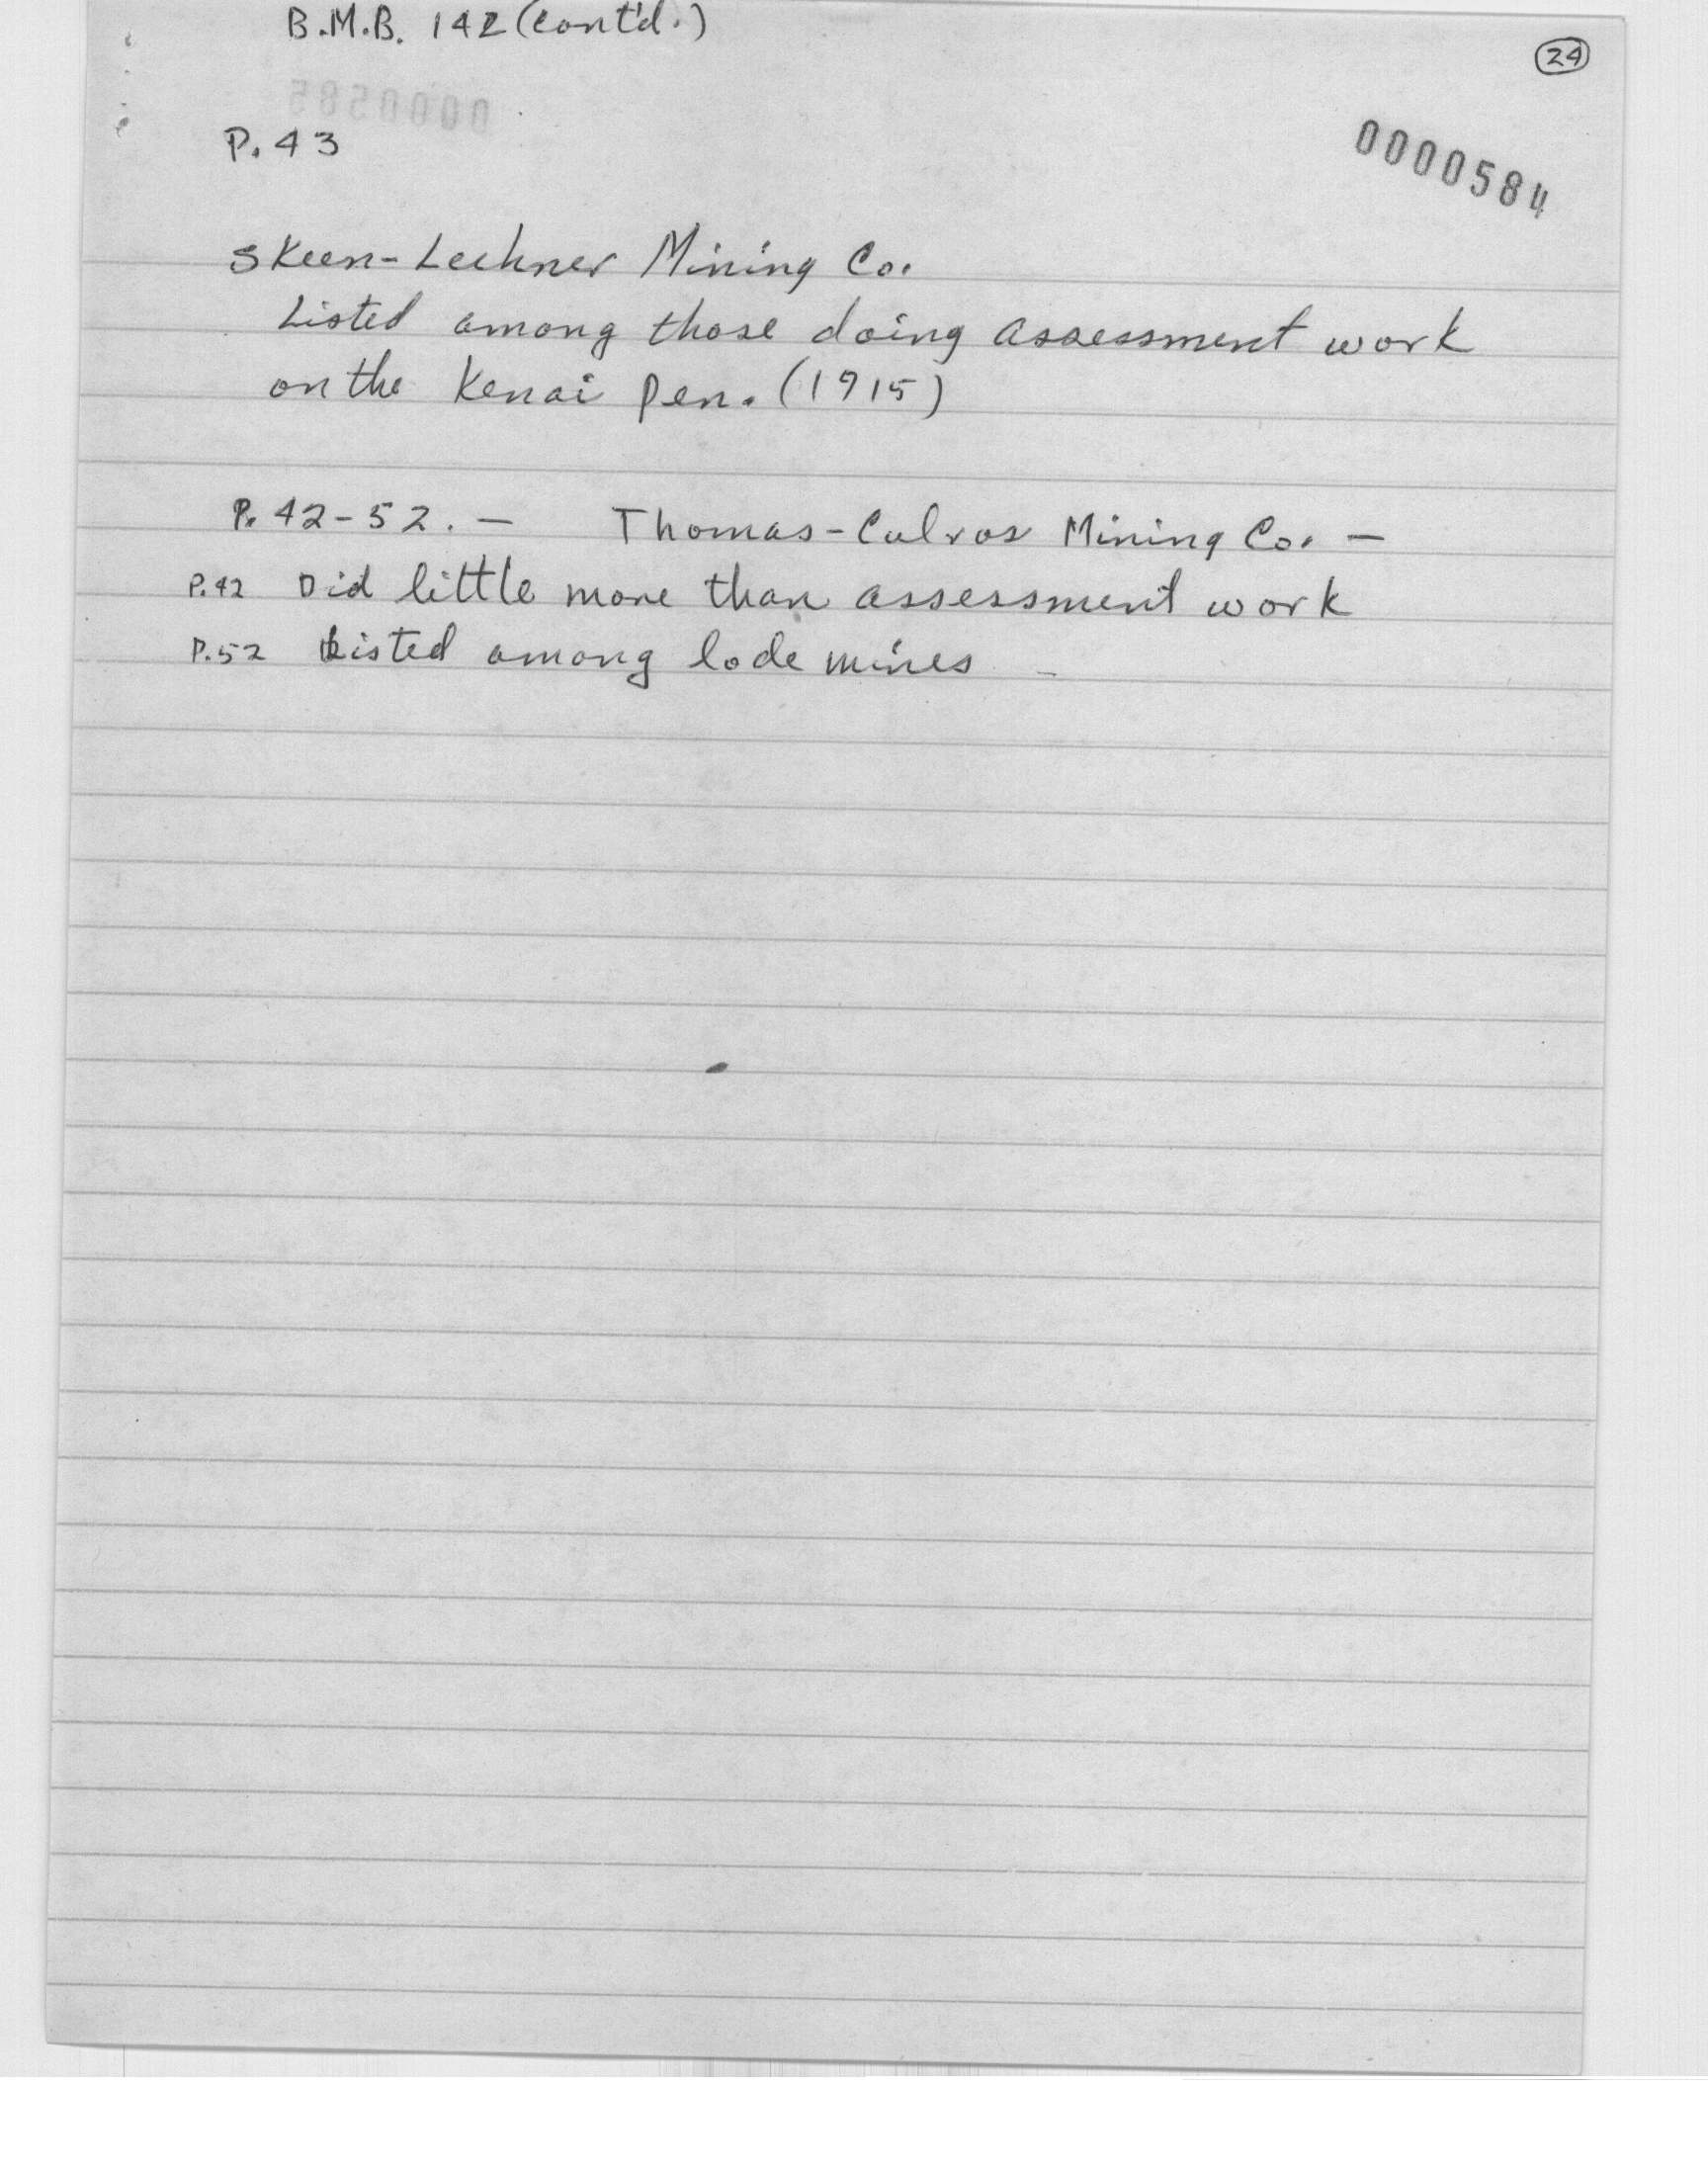 B.M.B. 142 (Cont'd.)
24
0000585
P. 43
0000584
Skeen-Lechner Mining Co.
Listed among those doing assessment work
on the Kenai Pen. (1915)
P. 42-52. — Thomas-Culros Mining Co. —
P.42 Did little more than assessment work
P.52 Listed among lode mines